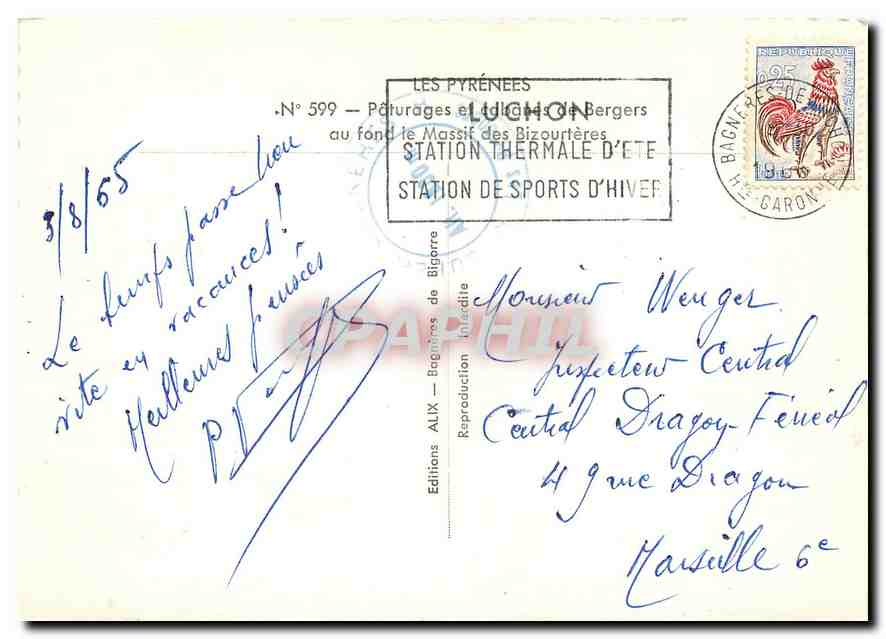 LES PYRÉNÉES
N° 599 — Pâturages et cabanes de Bergers
au fond le Massif des Bizourtères
LUCHON
STATION THERMALE D'ETE
STATION DE SPORTS D'HIVER
REPUBLIQUE FRANÇAISE
0,25
BAGNERES-DE-LUCHON
Hte GARONNE
3/8/65
Le temps passe
vite en vacances!
Meilleures pensées
Editions ALIX — Bagnères de Bigorre
Reproduction interdite
Monsieur Wenger
Inspecteur Central
Central Dragon-Ferréol
49 rue Dragon
Marseille 6e
CPAPHIL